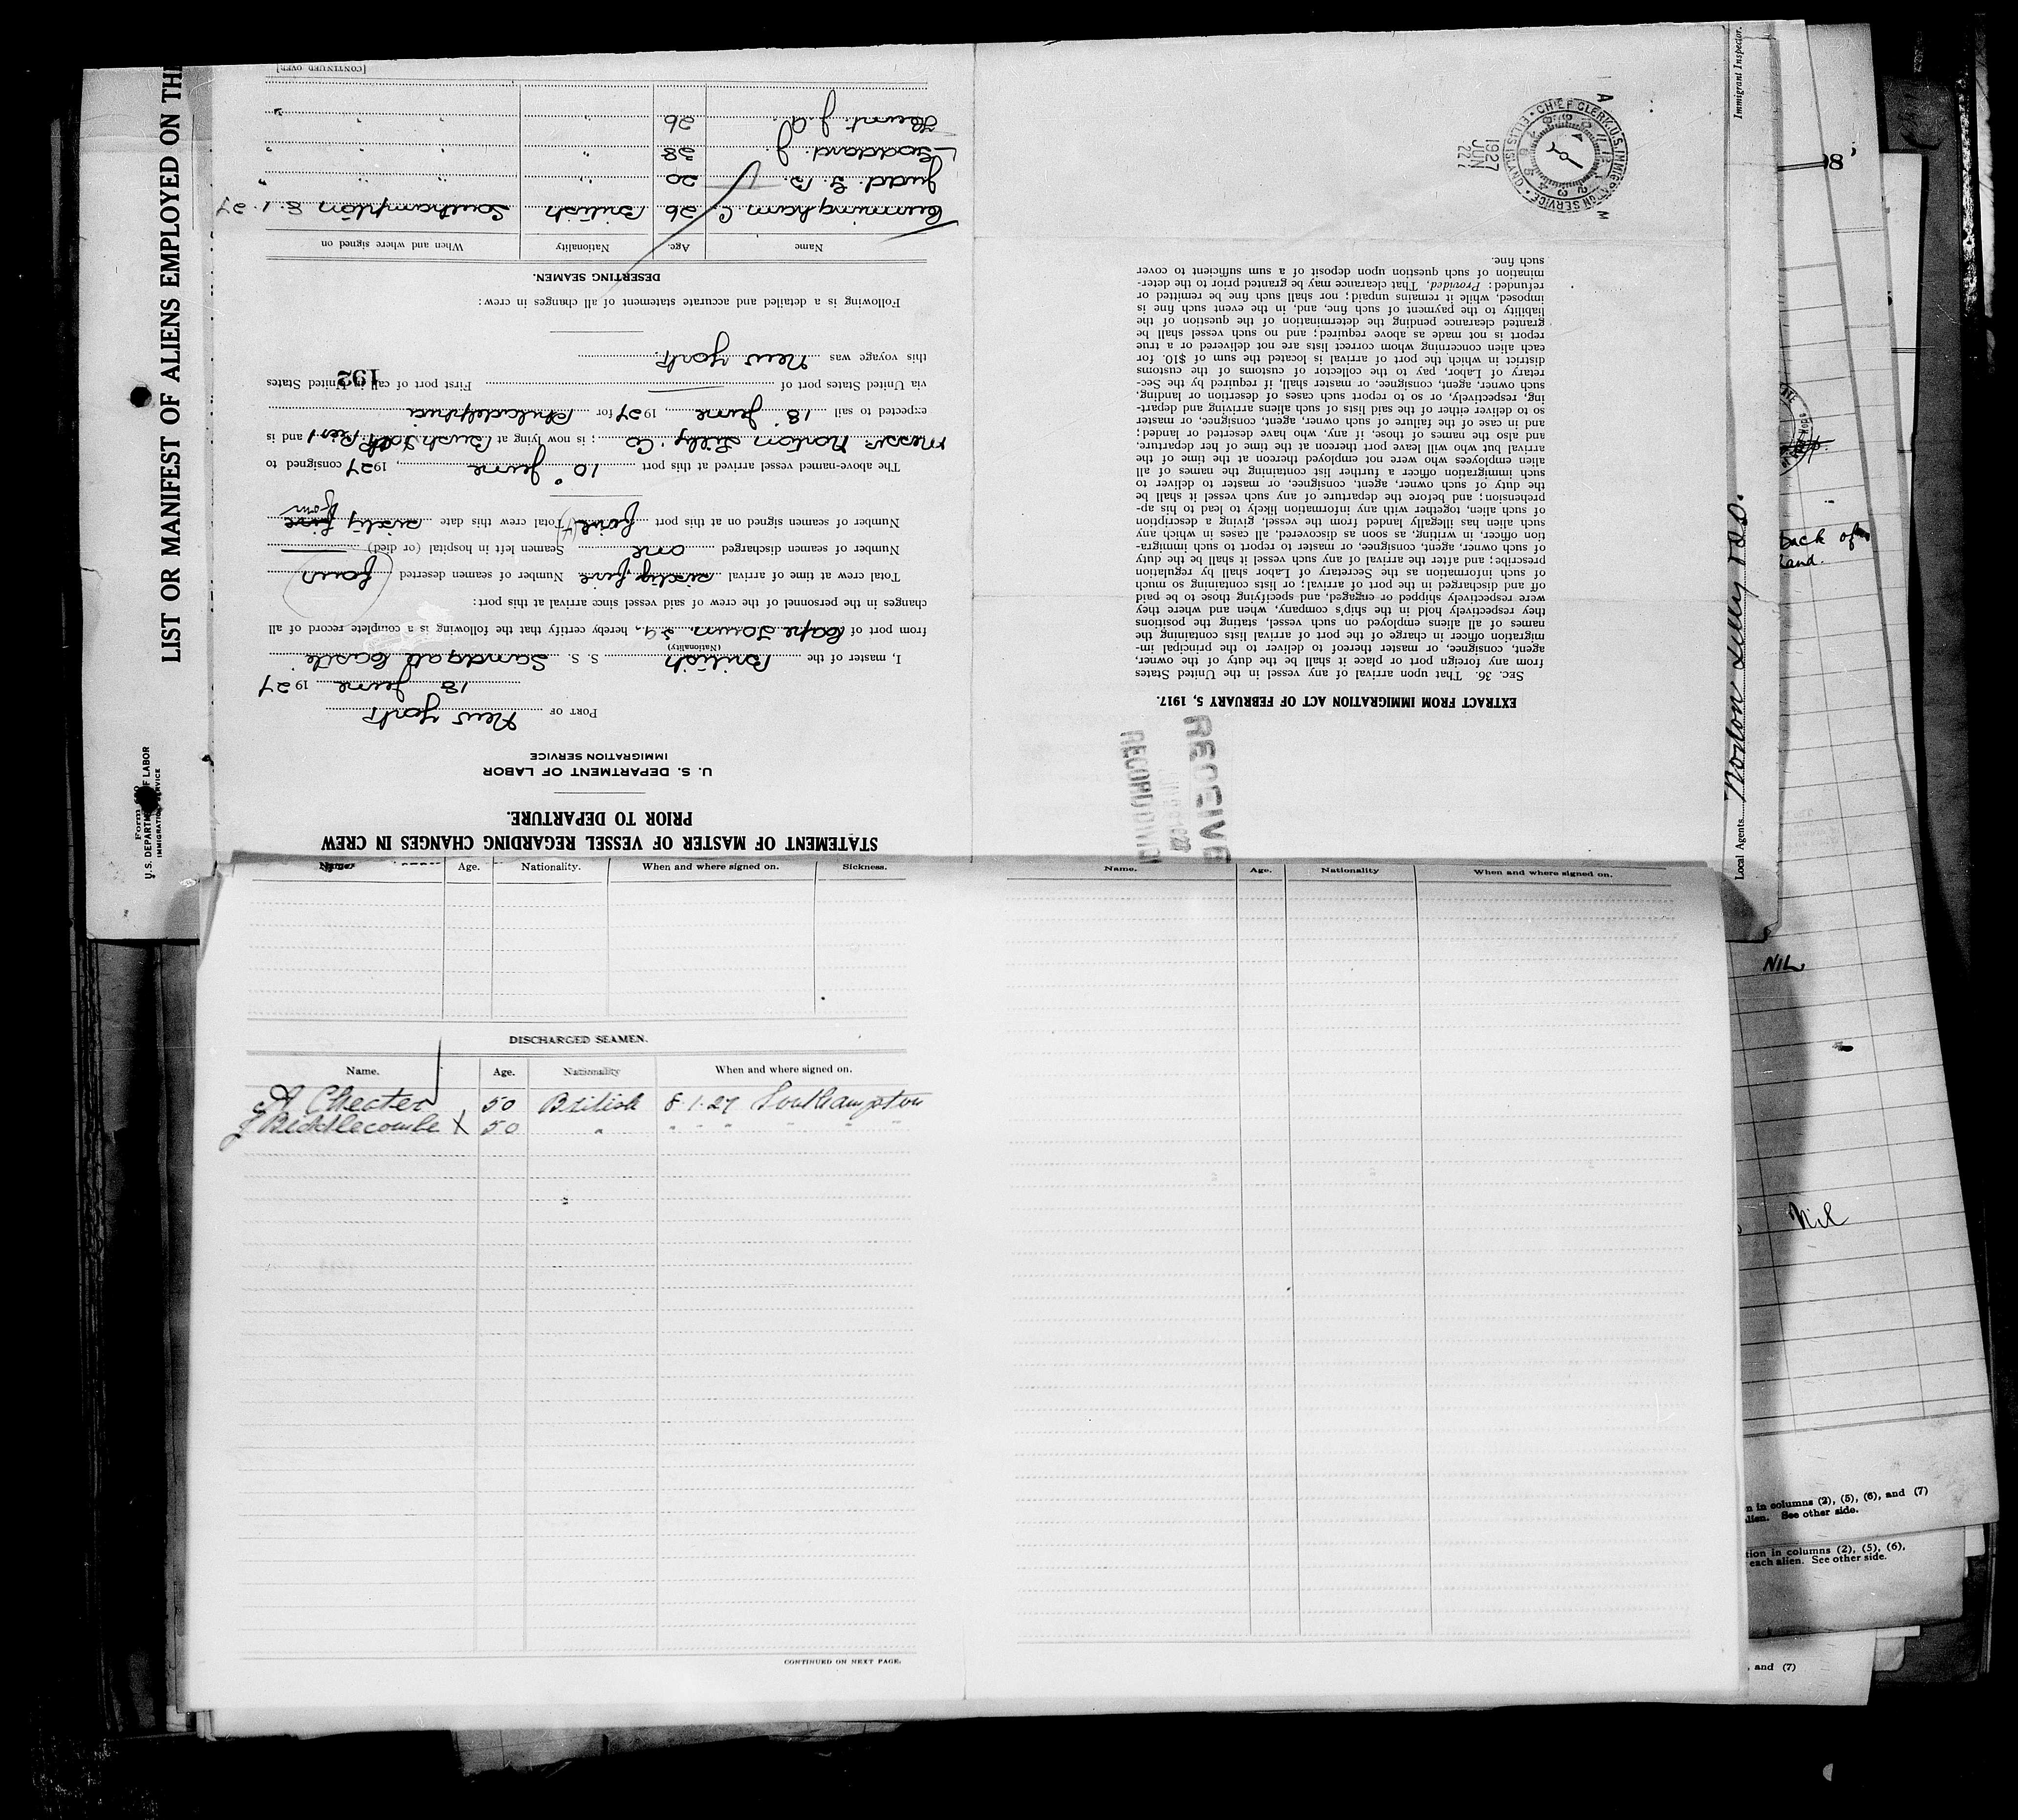 STATEMENT OF MASTER OF VESSEL REGARDING CHANGES IN CREW
PRIOR TO DEPARTURE.
U. S. DEPARTMENT OF LABOR
IMMIGRATION SERVICE
PORT OF New York
18 June 1927
I, master of the British S. S. Sandgate Castle
(Nationality)
from port of Cape Town, hereby certify that the following is a complete record of all
changes in the personnel of the crew of said vessel since arrival at this port:
Total crew at time of arrival sixty five Number of seamen deserted four
Number of seamen discharged one Seamen left in hospital (or died)
Number of seamen signed on at this port Total crew this date sixty five four
The above-named vessel arrived at this port 10 June, 1927 consigned to
Messrs Norton Lilly Co; is now lying at Bush Pier 1 and is
expected to sail 18 June, 1927 for Philadelphia
via United States port of First port of call in United States
this voyage was New York
192
Following is a detailed and accurate statement of all changes in crew:
DESERTING SEAMEN.
Name Age. Nationality When and where signed on
Cunningham C. 26 British Southampton 8.1.27
Judd. G. B. 20 " " "
Goddard. J 38 " " "
Hunt. J. A. 26 " " "
[CONTINUED OVER]
EXTRACT FROM IMMIGRATION ACT OF FEBRUARY 5, 1917.
SEC. 36. That upon arrival of any vessel in the United States
from any foreign port or place it shall be the duty of the owner,
agent, consignee, or master thereof to deliver to the principal im-
migration officer in charge of the port of arrival lists containing the
names of all aliens employed on such vessel, stating the positions
they respectively hold in the ship's company, when and where they
were respectively shipped or engaged, and specifying those to be paid
off and discharged in the port of arrival; or lists containing so much
of such information as the Secretary of Labor shall by regulation
prescribe; and after the arrival of any such vessel it shall be the duty
of such owner, agent, consignee, or master to report to such immigra-
tion officer, in writing, as soon as discovered, all cases in which any
such alien has illegally landed from the vessel, giving a description
of such alien, together with any information likely to lead to his ap-
prehension; and before the departure of any such vessel it shall be
the duty of such owner, agent, consignee, or master to deliver to
such immigration officer a further list containing the names of all
alien employees who were not employed thereon at the time of the
arrival but who will leave port thereon at the time of her departure,
and also the names of those, if any, who have deserted or landed;
and in case of the failure of such owner, agent, consignee, or master
so to deliver either of the said lists of such aliens arriving and depart-
ing, respectively, or so to report such cases of desertion or landing,
such owner, agent, consignee, or master shall, if required by the Sec-
retary of Labor, pay to the collector of customs of the customs
district in which the port of arrival is located the sum of $10. for
each alien concerning whom correct lists are not delivered or a true
report is not made as above required; and no such vessel shall be
granted clearance pending the determination of the question of the
liability to the payment of such fine, and, in the event such fine is
imposed, while it remains unpaid; nor shall such fine be remitted or
refunded: Provided, That clearance may be granted prior to the deter-
mination of such question upon deposit of a sum sufficient to cover
such fine.
CHIEF CLERK, U.S. IMMIGRATION SERVICE
ELLIS ISLAND
A M
1927
JUN
22
RECEIVE
RECORD DIVISI
LIST OR MANIFEST OF ALIENS EMPLOYED ON TH
U. S. DEPARTMENT OF LABOR
IMMIGRATION SERVICE
Immigrant Inspector.
Local Agents Norton Lilly
Name. Age. Nationality. When and where signed on. Sickness.
DISCHARGED SEAMEN.
Name. Age. Nationality When and where signed on.
A Chester 50 British 8.1.27 Southampton
J Biddlecombe X 50 " " " " " " "
CONTINUED ON NEXT PAGE.
Name. Age. Nationality When and where signed on.
back of
NIL
Nil
n in columns (2), (5), (6), and (7)
alien. See other side.
tion in columns (2), (5), (6),
each alien. See other side.
, and (7)